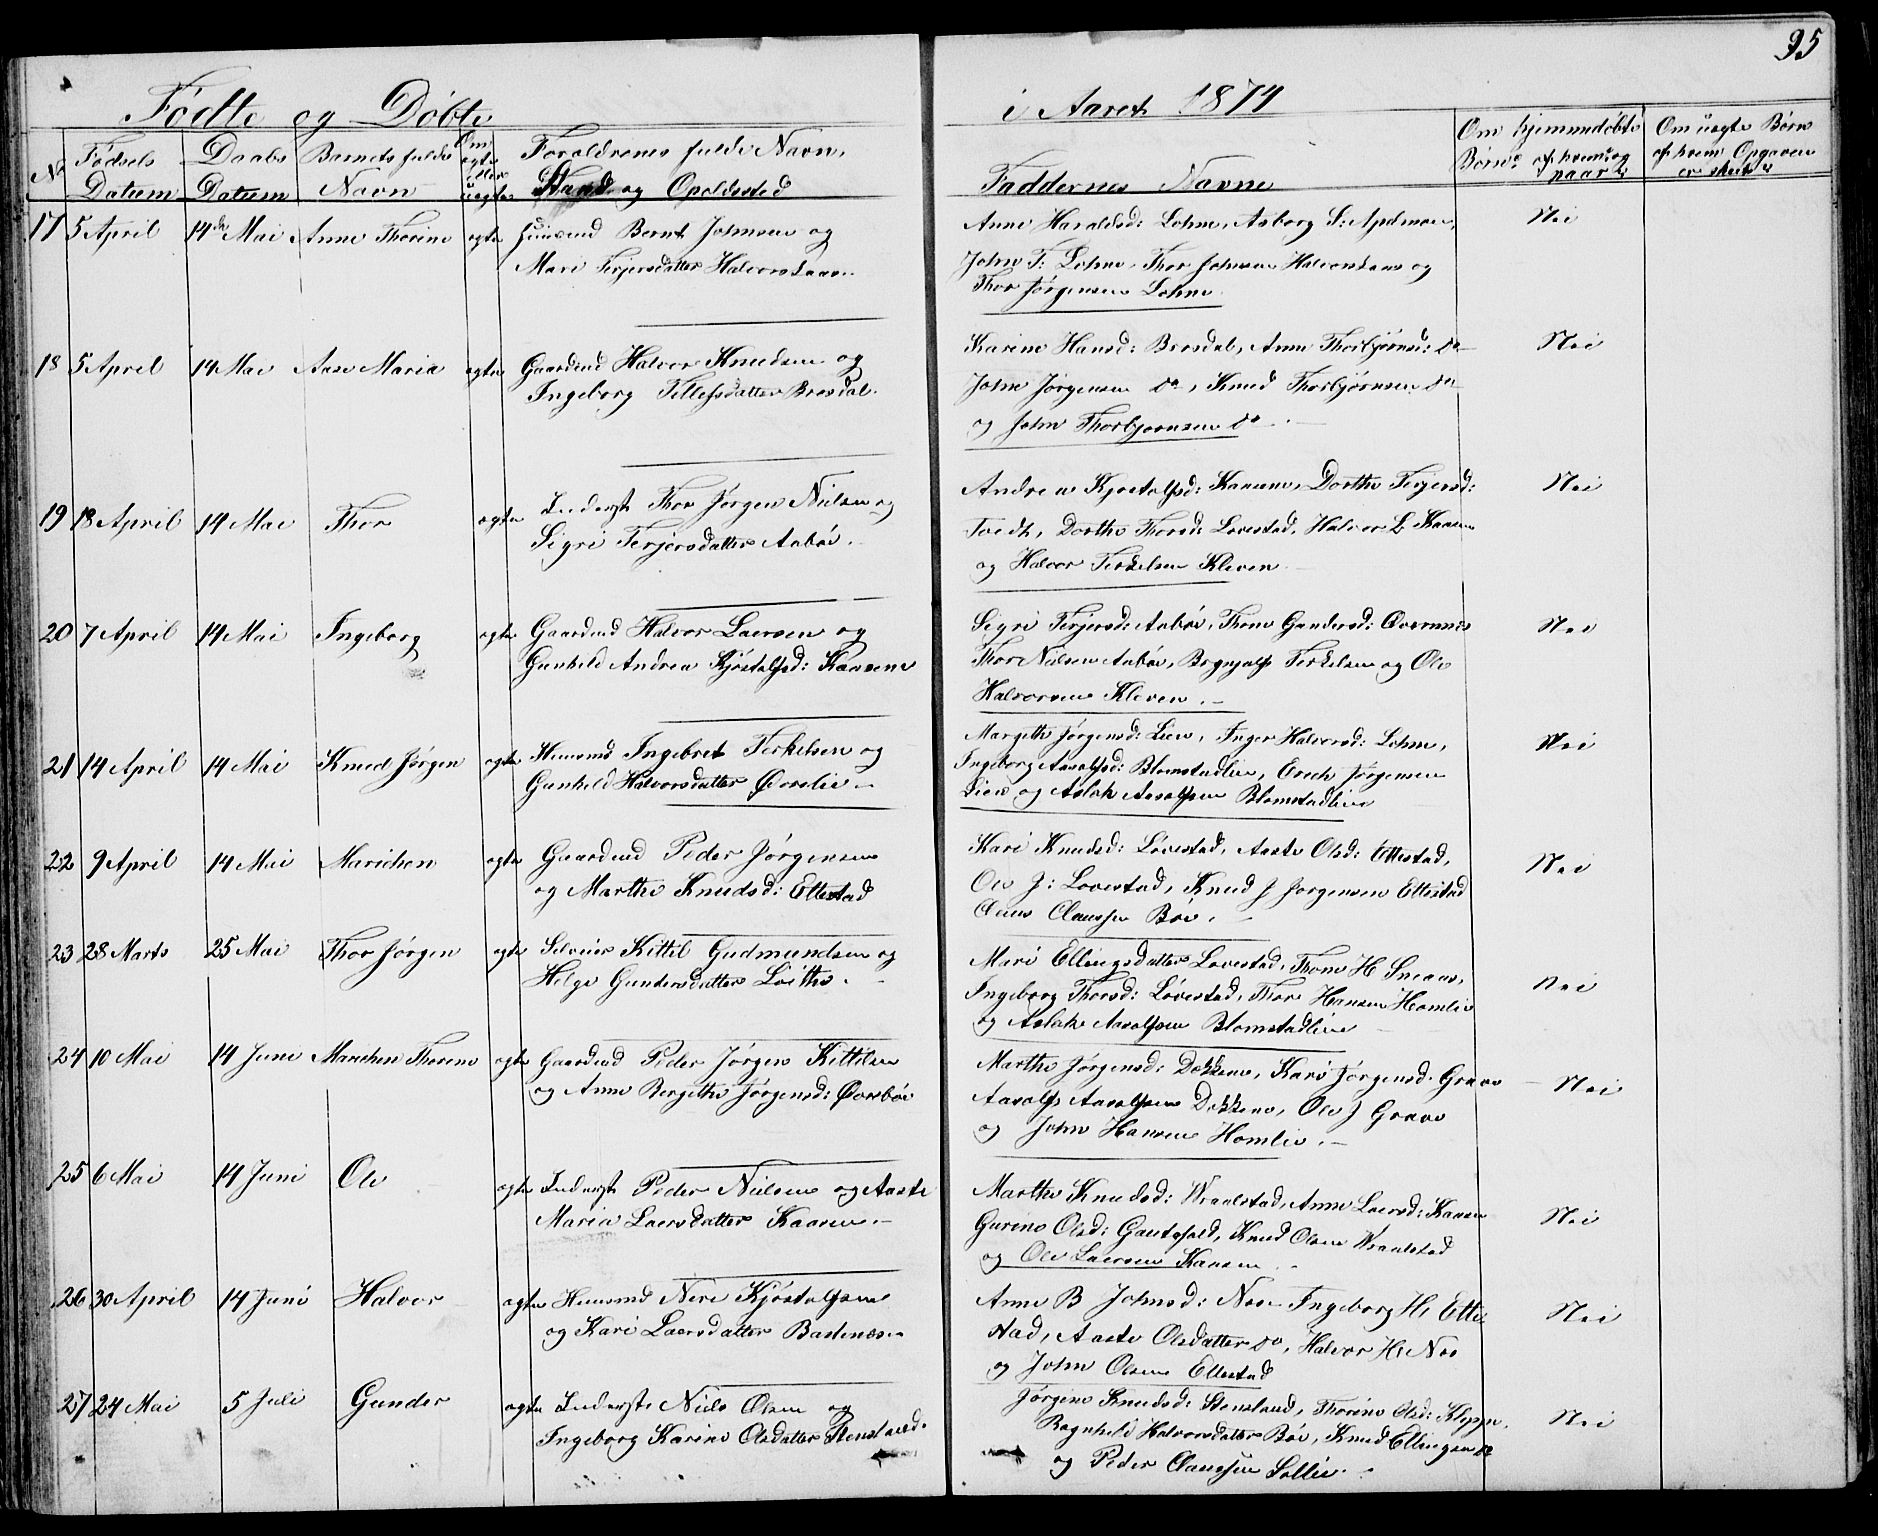 95
Fødte og Døbte i Aaret 1874
No
Fødsels Datum
Daabs Datum
Barnets fulde Navn
Om ægte eller uægte
Forældrenes fulde Navn, Stand og Opoldssted
Faddernes Navne
Om hjemmedøbte Børn, af hvem og naar
Om uægte Børn af hvem Opgaven er skeet
17 5 April 14de Mai Anne Thorine ægte Huusmd Bernt Johnsen og
Mari Terjersdatter Halvorskaas
Anne Haraldsd: Lohne, Asborg
John T: Lohne, Thor Johnsen Halvorskaas og
Thor Jørgensen Lohne
Nei
18 5 April 14 Mai Aase Maria ægte Gaardmd Halvor Knudsen og
Ingeborg Tellefsdatter Brosdal
Karine Hansd: Brosdal, Anne Thorbjørnsd: do
John Jørgensen do, Knud Thorbjørnsen do
og John Thorbjørnsen do
Nei
19 18 April 14 Mai Thor ægte Inderst Thor Jørgen Nielsen og
Sigri Terjersdatter Aabøe
Andrea Kjøstolfsd: Kaasene, Dorthe Terjersd:
Tvedt, Dorthe Thorsd: Lovestad, Halvor L Kaasen
og Halvor Terkelsen Kleven
Nei
20 7 April 14 Mai Ingeborg ægte Gaardmd Halvor Laersen og
Gunhild Andrea Kjøstolfsd: Kaasene
Sigri Terjersd: Aabøe, Thone Gundersd:
Thor Nielsen Aabøe, Brynjulf Terkelsen og Ole
Halvorsen Kleven
Nei
21 14 April 14 Mai Knud Jørgen ægte Huusmd Ingebret Terkelsen og
Gunhild Halvorsdatter Øverlie
Margethe Jørgensd: Lien, Inger Halvorsd: Lohne,
Ingeborg Aavolfsd: Blomstadlien, Erech Jørgensen
Lien og Aslak Aavolfsen Blomstadlien
Nei
22 9 April 14 Mai Marichen ægte Gaardmd Peder Jørgensen
og Marthe Knudsd: Ettestad
Kari Knudsd: Lövestad, Aaste Olsd: Ettestad,
Ole J: Lovestad, Knud J Jorgensen Ettestad
Claus Claussen Boe
Nei
23 28 Marts 25 Mai Thor Jørgen ægte Selveier Kittil Gudmundsen og
Helge Gundersdatter Loithe
Mari Ellingsdatter Lovestad, Thone H Sneaas,
Ingeborg Thorsd: Lövestad, Thor Hansen Homlie
og Aslak Aavolfsen Blomstadlien
Nei
24 10 Mai 14 Juni Marichen Thorene ægte Gaardmd Peder Jørgen Kittilsen
og Anne Bergethe Jørgensd: Øvrebøe
Marthe Jørgensd: Dokkene, Kari Jørgensd: Grave
Aavolf Aavolfsen Dokkene, Ole J Grave
og John Hansen Homlie
Nei
25 6 Mai 14 Juni Ole ægte Inderst Peder Nielsen og Aaste
Maria Laersdatter Kaasen
Marthe Knudsd: Wraalstad, Anne Laersd: Kaasen
Gurine Olsd: Gautefald, Knud Olsen Wraalstad
og Ole Laersen Kaasen
Nei
26 30 April 14 Juni Halvor ægte Huusmd Neri Kjøstolfsen
og Kari Laersdatter Bastenæs
Anne B Johnsd: Noe Ingeborg H: Ette
stad, Aaste Olsdatter do, Halvor H: Noe
og John Olsen Ettestad
Nei
27 24 Mai 5 Juli Gunder ægte Inderste Niels Olsen og
Ingeborg Karine Olsdatter Stensland
Jørgine Knudsd: Stensland, Thorine Olsd: Kleppe,
Ragnhild Halvorsdatter Bøe, Knud Ellingsen do
og Peder Claussen Sollie
Nei